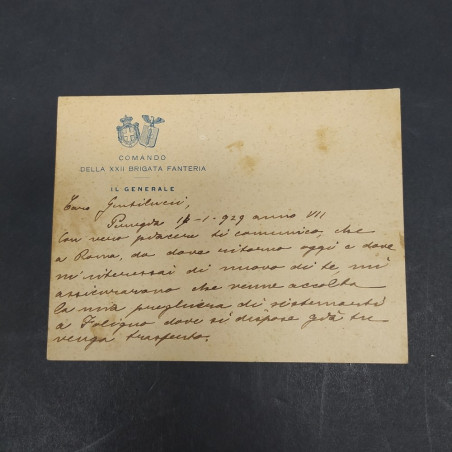 COMANDO
DELLA XXII BRIGATA FANTERIA
IL GENERALE
Caro Gentilucci,
Perugia 17-1-929 anno VII
Con vero piacere ti comunico che
a Roma, da dove ritorno oggi e dove
m'interessai di nuovo di te, mi
assicurarono che venne accolta
la mia preghiera di sistemarti
a Foligno dove si dispose già tu
venga trasferito.